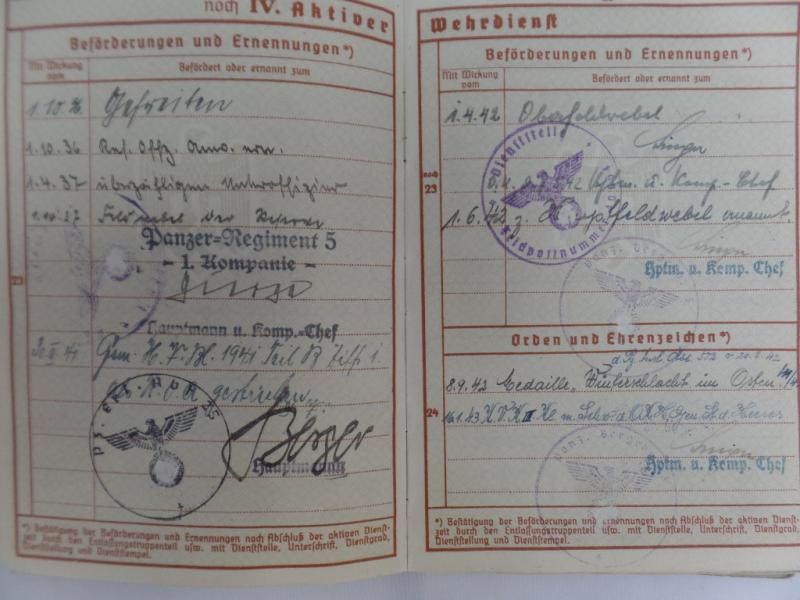 noch IV. Aktiver
Beförderungen und Ernennungen*)
Mit Wirkung vom
Befördert oder ernannt zum
1.10.36 Gefreiten
1.10.36 Res. Offz. Anw. ern.
1.4.37 überzähligen Unteroffizier
1.10.37 Feldwebel der Reserve
Panzer-Regiment 5
- 1. Kompanie -
23
Hauptmann u. Komp.-Chef
Gem. H.V.Bl. 1941 Teil B Ziff. 1
als R.O.A. gestrichen.
Hauptmann
*) Bestätigung der Beförderungen und Ernennungen nach Abschluß der aktiven Dienst-
zeit durch den Entlassungstruppenteil usw. mit Dienststelle, Unterschrift, Dienstgrad,
Dienststellung und Dienststempel.
Wehrdienst
Beförderungen und Ernennungen*)
Mit Wirkung vom
Befördert oder ernannt zum
1.4.42 Oberfeldwebel
Dienststelle
Feldpostnummer
noch
23
Hptm. u. Komp.-Chef
1.6.42 z. Hauptfeldwebel ernannt.
Hptm. u. Komp. Chef
Orden und Ehrenzeichen*)
8.9.42 Medaille „Winterschlacht im Osten"
24
Hptm. u. Komp. Chef
*) Bestätigung der Beförderungen und Ernennungen nach Abschluß der aktiven Dienst-
zeit durch den Entlassungstruppenteil usw. mit Dienststelle, Unterschrift, Dienstgrad,
Dienststellung und Dienststempel.